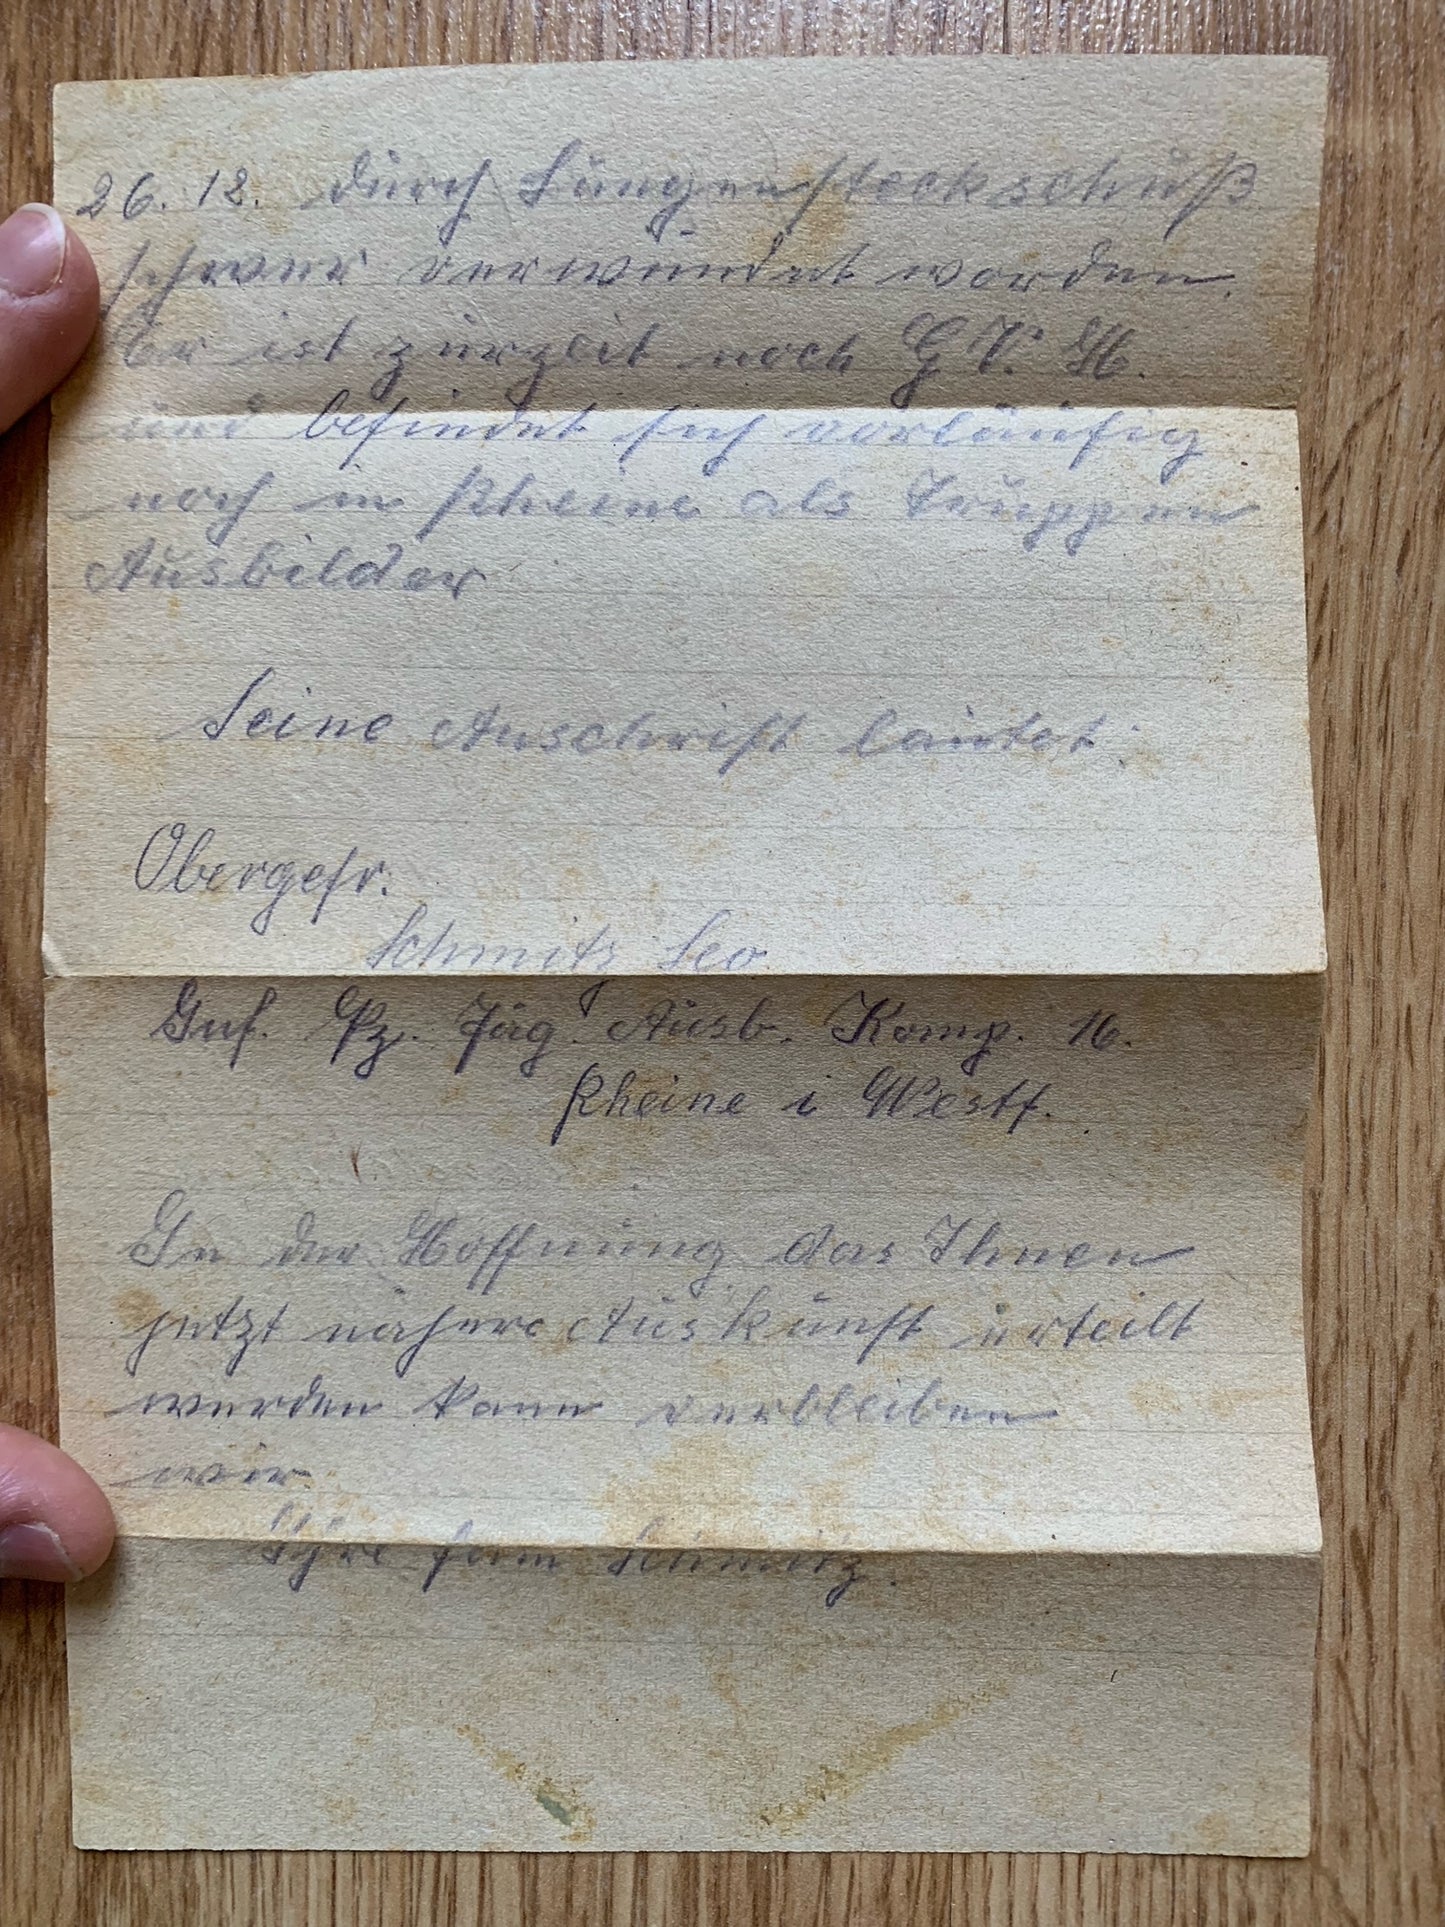 26. 12. durch Lungensteckschuß
schwer verwundet worden.
Er ist zurzeit noch G. V. H.
und befindet sich vorläufig
noch in Rheine als Truppen
Ausbilder
Seine Anschrift lautet:
Obergefr.
Schmitz Leo
Inf. Pz. Jäg. Ausb. Komp. 16.
Rheine i Westf.
In der Hoffnung das Ihnen
jetzt nähere Auskunft erteilt
werden kann verbleiben
wir
Ihre Fam Schmitz.